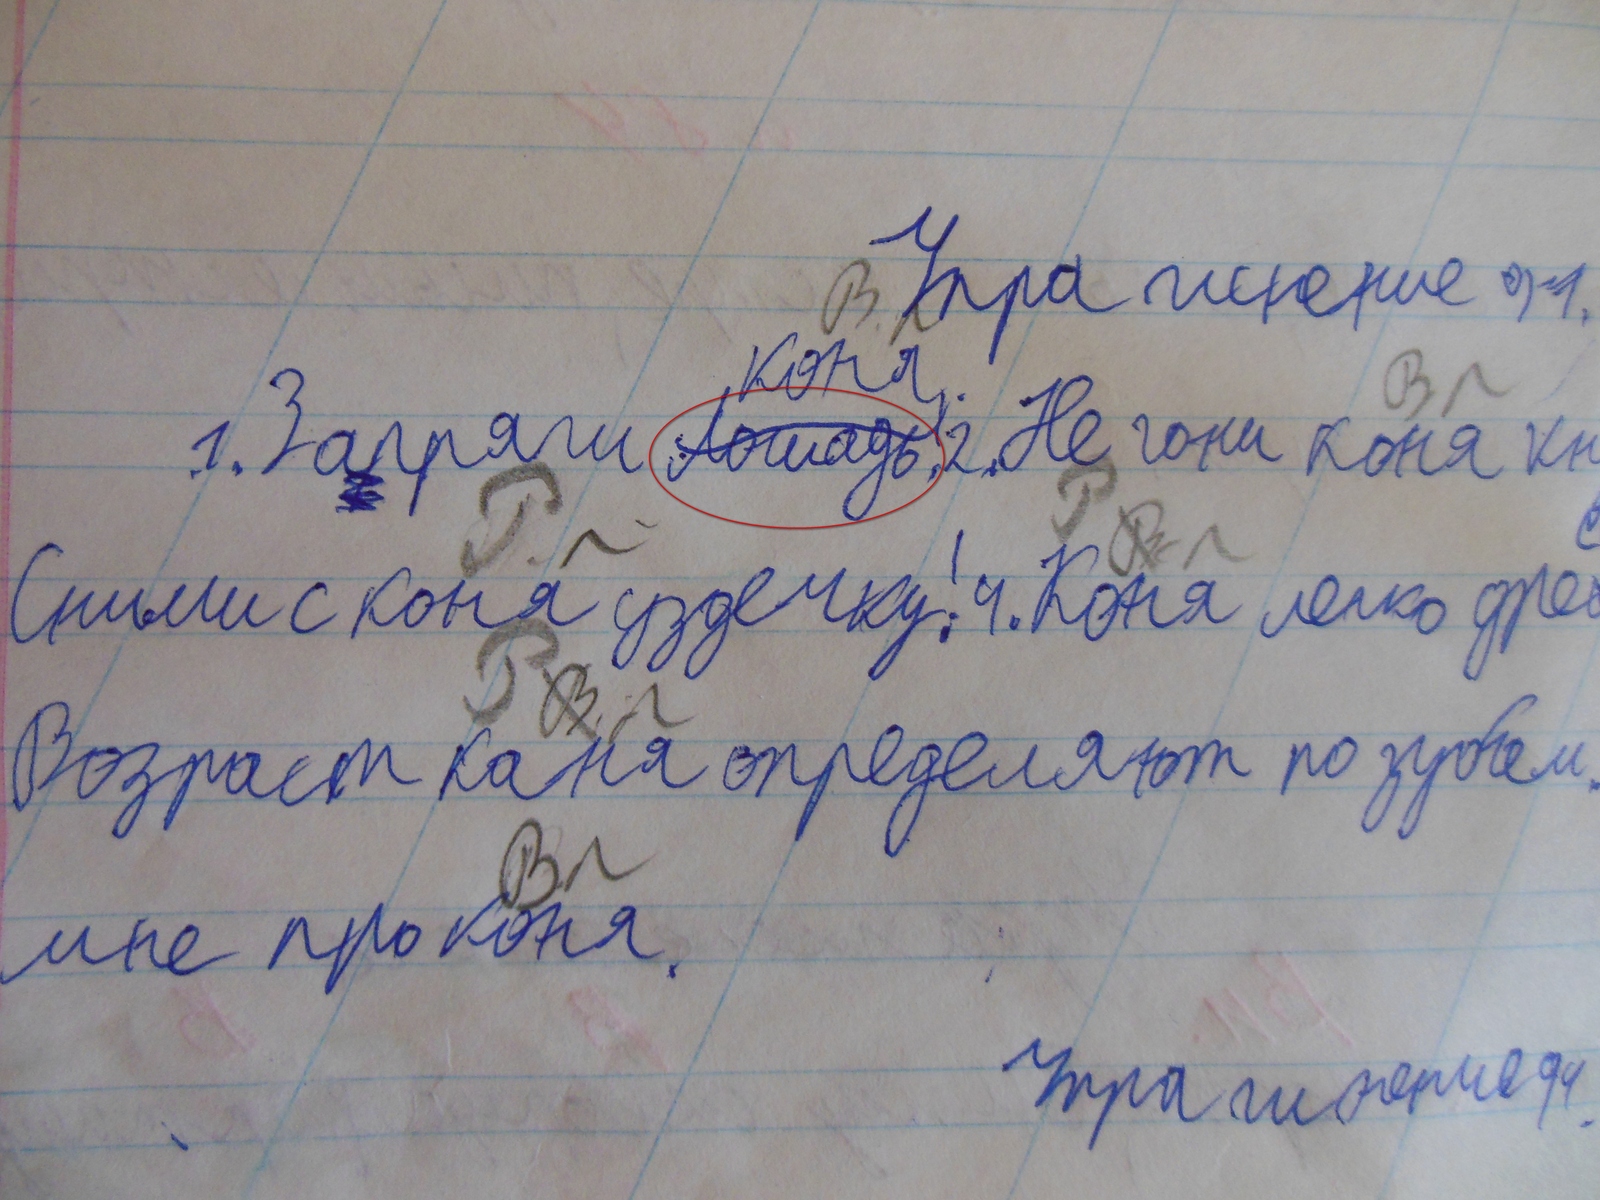 Упрагиснение 91.
В.п
коня.
1. Запряги лошадь. 2. Не гони коня кн
В п
Сними с коня уздечку! 4. Коня легко дрес
Р. п
Р В. п
Возраст каня определяют по зубам.
Р В. п
мне про коня.
В п
Упрагиснение 94.